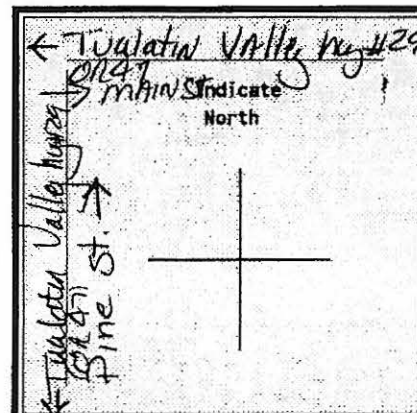 ← Tualatin Valley hwy #29
OR47
MAIN St
Indicate
North
← Tualatin Valley hwy29
OR47
Pine St. →